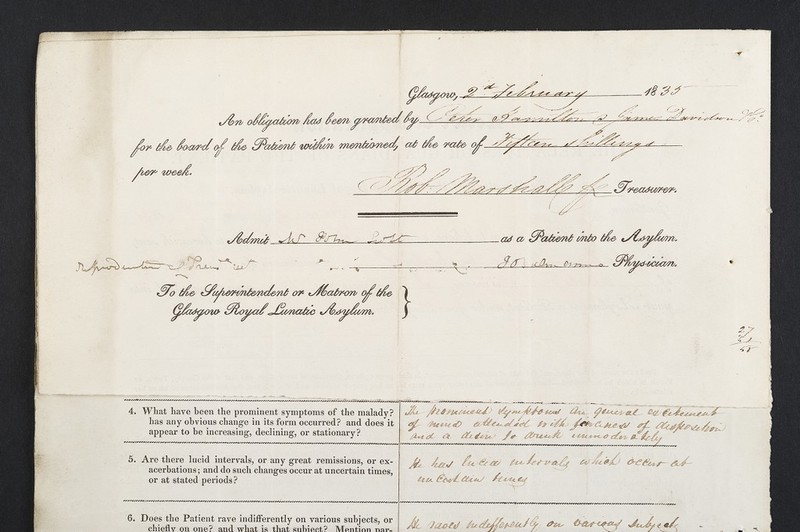 Glasgow, 2d February 1835
An obligation has been granted by Peter Hamilton & James Davidson
for the board of the Patient within mentioned, at the rate of Fifteen Shillings
per week.
Rob. Marshall Treasurer.
Admit Mr John as a Patient into the Asylum.
Physician.
To the Superintendent or Matron of the
Glasgow Royal Lunatic Asylum. }
4. What have been the prominent symptoms of the malady?
has any obvious change in its form occurred? and does it
appear to be increasing, declining, or stationary?
The prominent symptoms are general excitement
of mind attended with fierceness of disposition
and a desire to drink immoderately
5. Are there lucid intervals, or any great remissions, or ex-
acerbations; and do such changes occur at uncertain times,
or at stated periods?
He has lucid intervals which occur at
uncertain times
6. Does the Patient rave indifferently on various subjects, or
chiefly on one? and what is that subject? Mention par-
He raves indifferently on various subjects